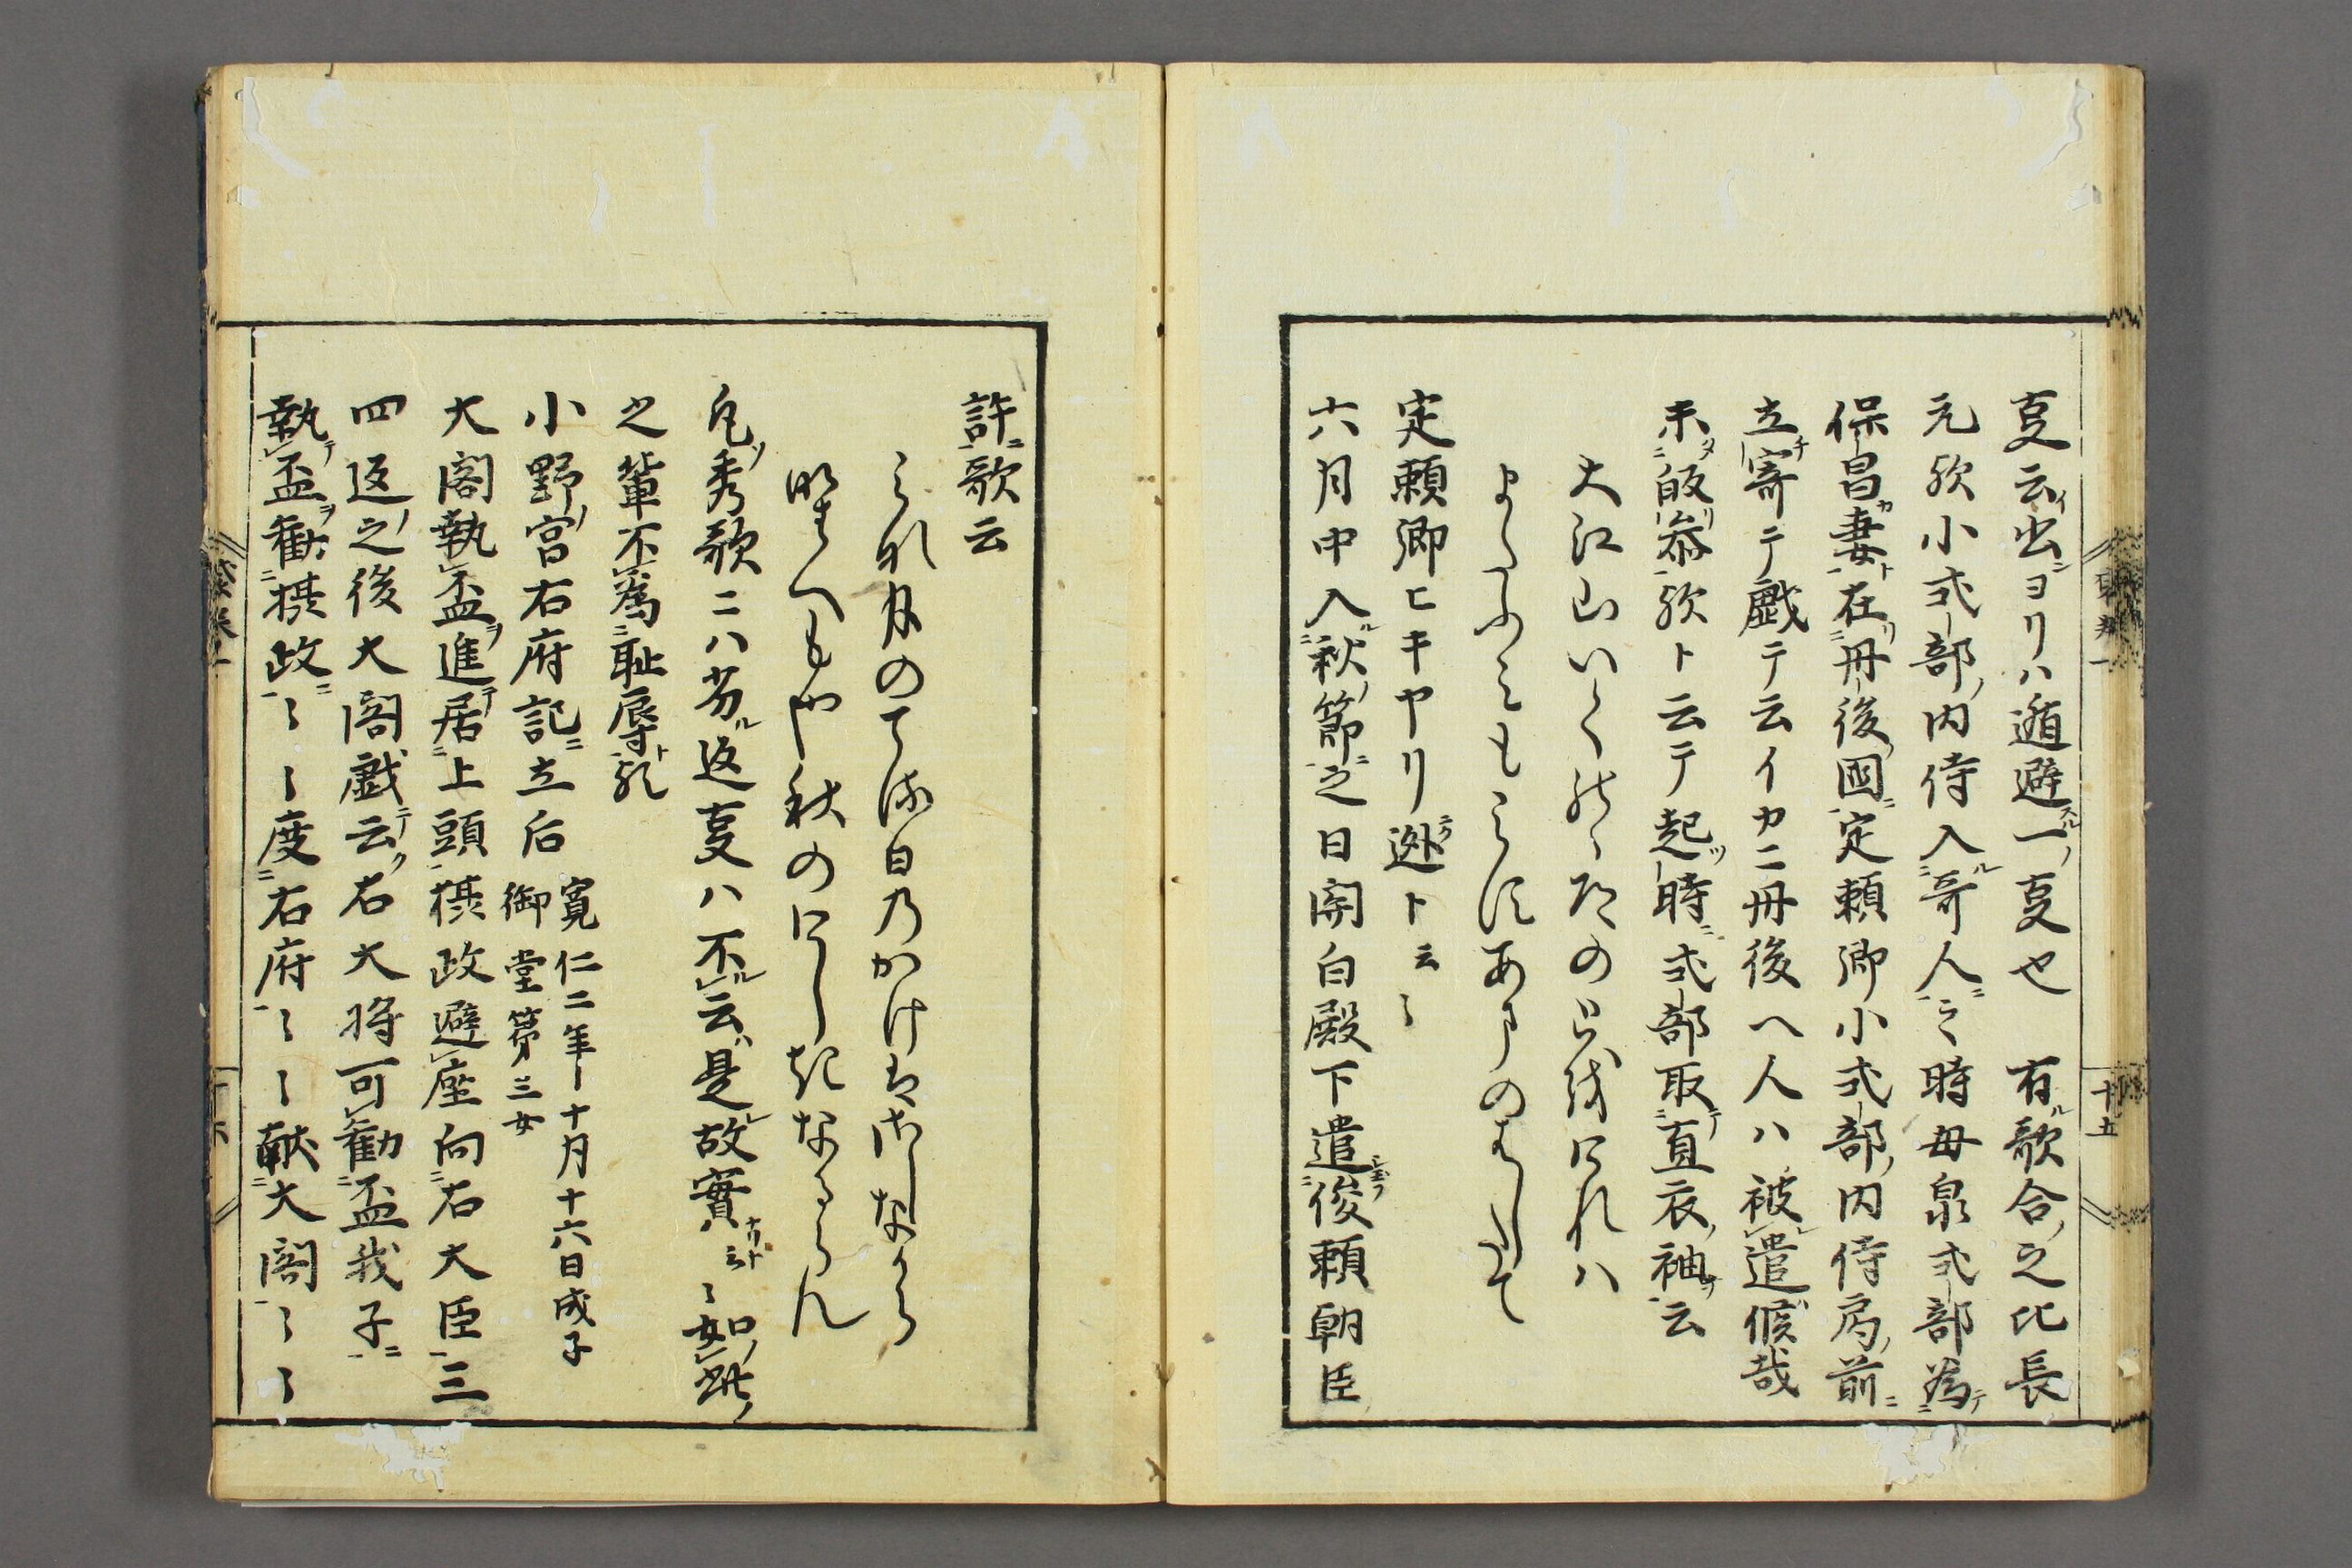 叓云出ヨリハ遁避スル一ノ叓也　有ル歌合ノ之比長
元欤小式部ノ内侍入ル哥人ニ之時母泉式部為テ
保昌カ妻ト在リ丹後ノ國ニ定頼卿小式部ノ内侍局ノ前ニ
立チ寄テ戯テ云イカニ丹後ヘ人ハ被レ遣候哉
未タ皈リ参欤ト云テ起ツ時ニ式部取テ直衣ノ袖ヲ云
大江山いくのゝ道の遠けれは
またふみもみすあまのはしたて
定頼卿ヒキヤリ逃ト云〻
六月中入ル秋ノ節ニ之日関白殿下遣俊頼朝臣ノ
許ニ歌云
みな月のてる日のかけはさしなから
凡ソ秀歌ニハ劣ル返叓ハ不ル云ハ是レ故實ナリト云〻如ノ此ノ
之輩不為耻辱ト欤
小野ノ宮右府記ニ立后
寛仁二年十月十六日威子
御堂第三女
大閤執盃ヲ進テ居上頭摂政避座向右大臣三
四返ノ之後大閤戯テ云ク右大将可勧盃我子ニ
執テ盃ヲ勧摂政ニ〻〻〻度右府〻〻〻献大閤〻〻
十五